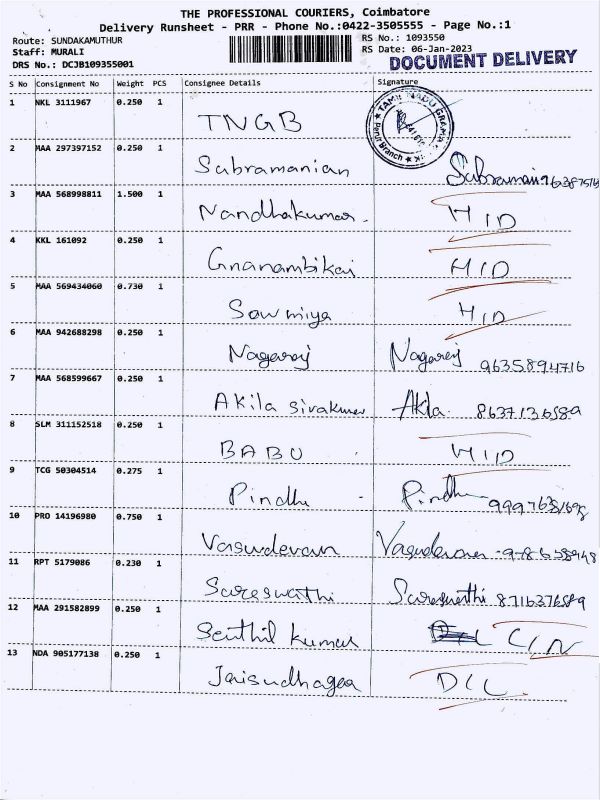 THE PROFESSIONAL COURIERS, Coimbatore
Delivery Runsheet - PRR - Phone No.:0422-3505555 - Page No.:1
Route: SUNDAKAMUTHUR
Staff: MURALI
DRS No.: DCJB109355001
RS No.: 1093550
RS Date: 06-Jan-2023
DOCUMENT DELIVERY
S No Consignment No Weight PCS Consignee Details Signature
1 NKL 3111967 0.250 1 TNGB TAMIL NADU GRAMA Branch
2 MAA 297397152 0.250 1 Subramanian
3 MAA 568998811 1.500 1 Nandhakumar. H I D
4 KKL 161092 0.250 1 Gnanambikai H I D
5 MAA 569434060 0.730 1 Sowmiya H I D
6 MAA 942688298 0.250 1 Nagaraj Nagaraj 9635894716
7 MAA 568599667 0.250 1 Akila sivakumar Akla. 8637136589
8 SLM 311152518 0.250 1 BABU H I D
9 TCG 50304514 0.275 1 Pindhu - Pindhu
10 PRO 14196980 0.750 1 Vasudevan Vasudevan
11 RPT 5179086 0.230 1 Sareswathi Sareswathi 8716376589
12 MAA 291582899 0.250 1 Senthil kumar C I N
13 NDA 905177138 0.250 1 Jaisudhagar D I L